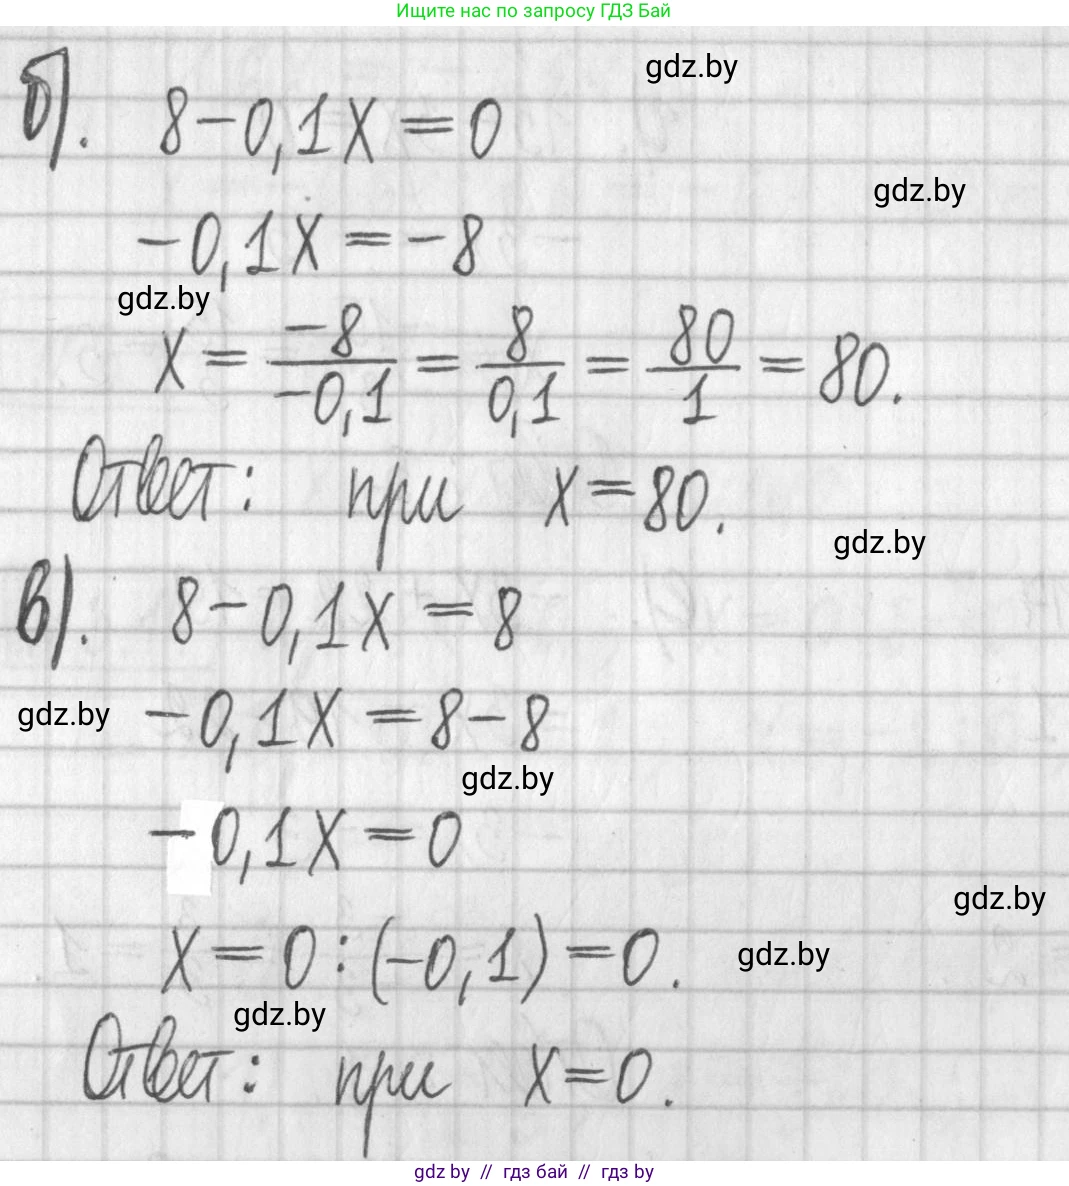 Ищите нас по запросу ГДЗ Бай
gdz.by
б). 8-0,1x=0
gdz.by
-0,1x=-8
gdz.by
x = -8/-0,1 = 8/0,1 = 80/1 = 80.
Ответ: при x=80.
gdz.by
в). 8-0,1x=8
gdz.by -0,1x=8-8
gdz.by
-0,1x=0
gdz.by
x=0:(-0,1)=0. gdz.by
gdz.by
Ответ: при x=0.
gdz by // гдз бай // гдз by